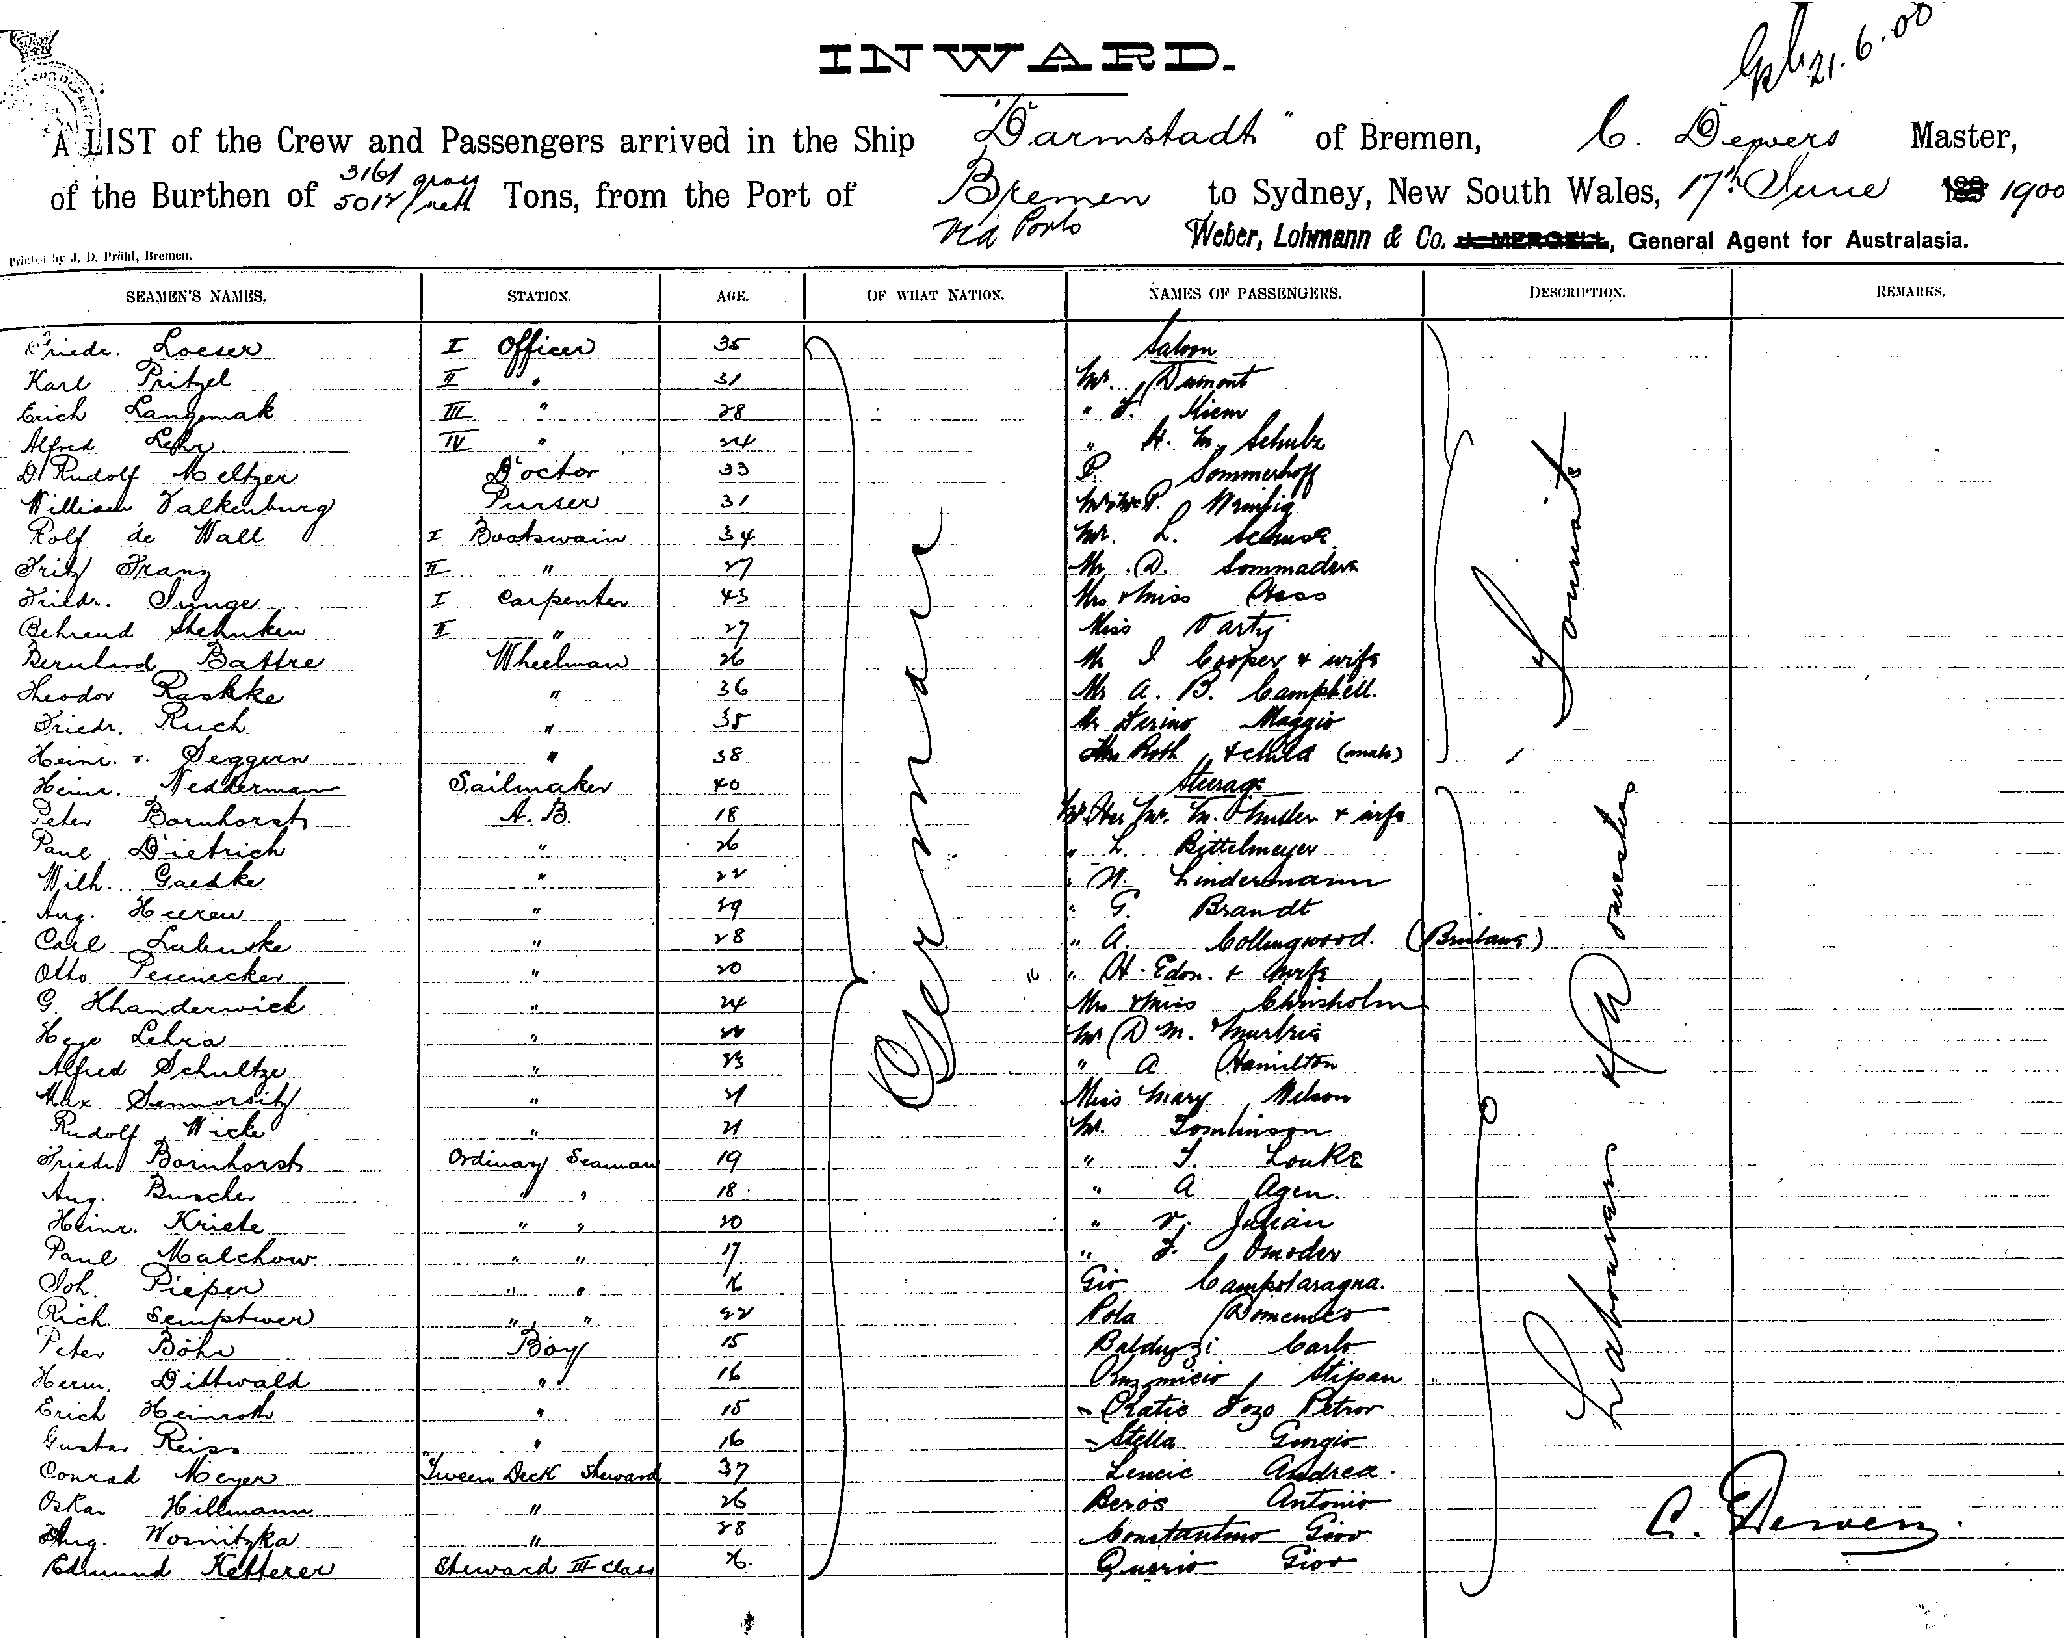 INWARD.
21.6.00
A LIST of the Crew and Passengers arrived in the Ship "Darmstadt" of Bremen, C. Dewers Master,
of the Burthen of 3161 gross 5012 nett Tons, from the Port of Bremen to Sydney, New South Wales, 17th June 1900
via Ports Weber, Lohmann & Co. J. MERGELL, General Agent for Australasia.
Printed by J. D. Prühl, Bremen.
SEAMEN'S NAMES. STATION. AGE. OF WHAT NATION. NAMES OF PASSENGERS. DESCRIPTION. REMARKS.
Friedr. Loeser I Officer 35 Saloon
Karl Pritzel II " 31 Mr. Dumont
Erich Langemak III " 28 " F. Kiem
Alfred Lehr IV " 24 " H. M. Schulz
Dr Rudolf Meltzer Doctor 33 P. Sommerhoff
William Valkenburg Purser 31
Rolf de Wall I Boatswain 34 Mr. L.
Fritz Franz II " 27 Mr. A. Sommaders
Friedr. Junge I Carpenter 43 Mrs & Miss Hess
Behrend Stehnken II " 27 Miss Varty
Bernhard Battre Wheelman 26 Mr J Cooper & wife
Theodor Raskke " 36 Mr A. B. Campbell.
Friedr. Ruch " 35 Mr Ferino Maggio
Heinr. v. Seggern " 38 Mrs Roth & child (male)
Heinr. Nedderman Sailmaker 40 Steerage
Peter Bornhorst A. B. 18 & wife
Paul Dietrich " 26 " L. Bittelmeyer
Wilh. Gaedke " 22 " W. Lindermann
Aug. Heeren " 29 " G. Brandt
Carl Lubenske " 28 " A. Collingwood. (Brisbane)
Otto Pesenecker " 20 " H. Edon. & wife
G. Khanderwick " 24 Mrs & Miss Chrisholm
Hego Lehra " 22 Mr D M. Murtrie
Alfred Schultze " 23 " A Hamilton
Max " 21 Miss Mary Nelson
Rudolf Wicke " 21 Mr. Tomlinson
Friedr Bornhorst Ordinary Seaman 19 " T. Louke
Aug. Buscher " " 18 " A Agen.
Heinr. Kriete " " 20 " V. Julian
Paul Malchow " " 17 " F. Omoder
Joh. Pieper " " 16 Gio Campstaragna.
Rich. Semptwer " " 22 Pola Domenico
Peter Böhr Boy 15 Balduzzi Carlo
Herm. Dittwald " 16 Stipan
Erich Heinroth " 15 Ratic Jozo Petrov
Gustav Reiss " 16 Stella Giorgio
Conrad Meyer Tween Deck Steward 37 Lencic Andrea.
Oskar Hillmann " 26 Beros Antonio
Aug. Wosnitzka " 28 Constantino Giov
Edmund Ketterer Steward III class 26. Querio Giov
Germany
Tourists
Labourers & Domestics
C. Dewers.